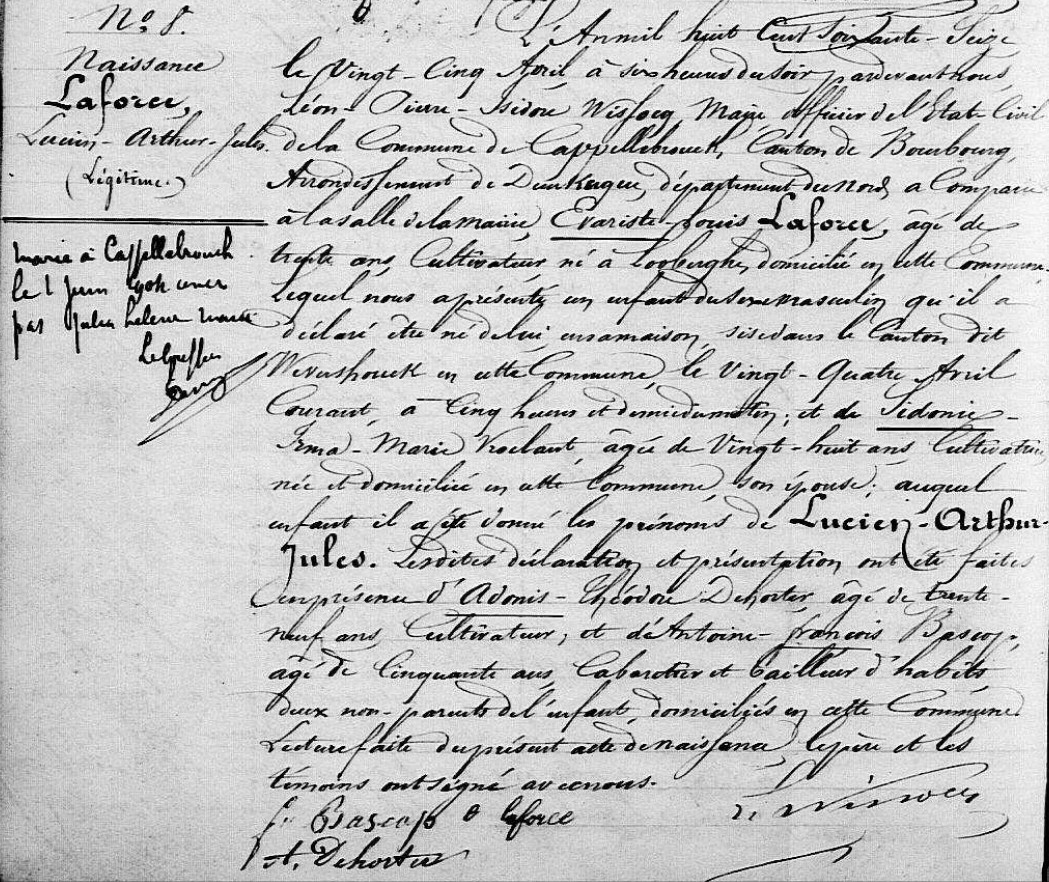 N.º 8.
Naissance
Laforce,
Lucien-Arthur-Jules.
(Légitime.)
marié à Cappellebrouck
le 1 juin
par Julia helene
Le greffier
L'An mil huit Cent Soixante-Seize
le Vingt-Cinq Avril, à six heures du soir, pardevant nous,
Léon-Pierre-Isidore Wissocq, Maire, officier de l'Etat-Civil
de la Commune de Cappellebrouck, Canton de Bourbourg,
Arrondissement de Dunkerque, département du Nord, a Comparu
à la salle de la mairie, Evariste-Louis Laforce, âgé de
trente ans, Cultivateur né à Looberghe, domicilié en cette Commune,
Lequel nous a présenté un enfant du sexe masculin qu'il a
déclaré être né de lui, en sa maison, sise dans le Canton dit
en cette Commune, le Vingt-Quatre Avril
Courant, à Cinq heures et demie du matin; et de Sidonie-
Irma-Marie âgée de Vingt-huit ans, Cultivatrice,
née et domiciliée en cette Commune, son épouse; auquel
enfant il a été donné les prénoms de Lucien-Arthur-
Jules. Lesdites déclaration et présentation ont été faites
en présence d'Adonis-Théodore Dehorter, âgé de trente-
neuf ans, Cultivateur, et de Antoine-françois Bascop,
âgé de Cinquante ans, Cabaretier et tailleur d'habits
deux non-parents de l'enfant, domiciliés en cette Commune
Lecture faite du présent acte de naissance, le père et les
témoins ont signé avec nous.
f. Bascop e laforce
A. Dehorter